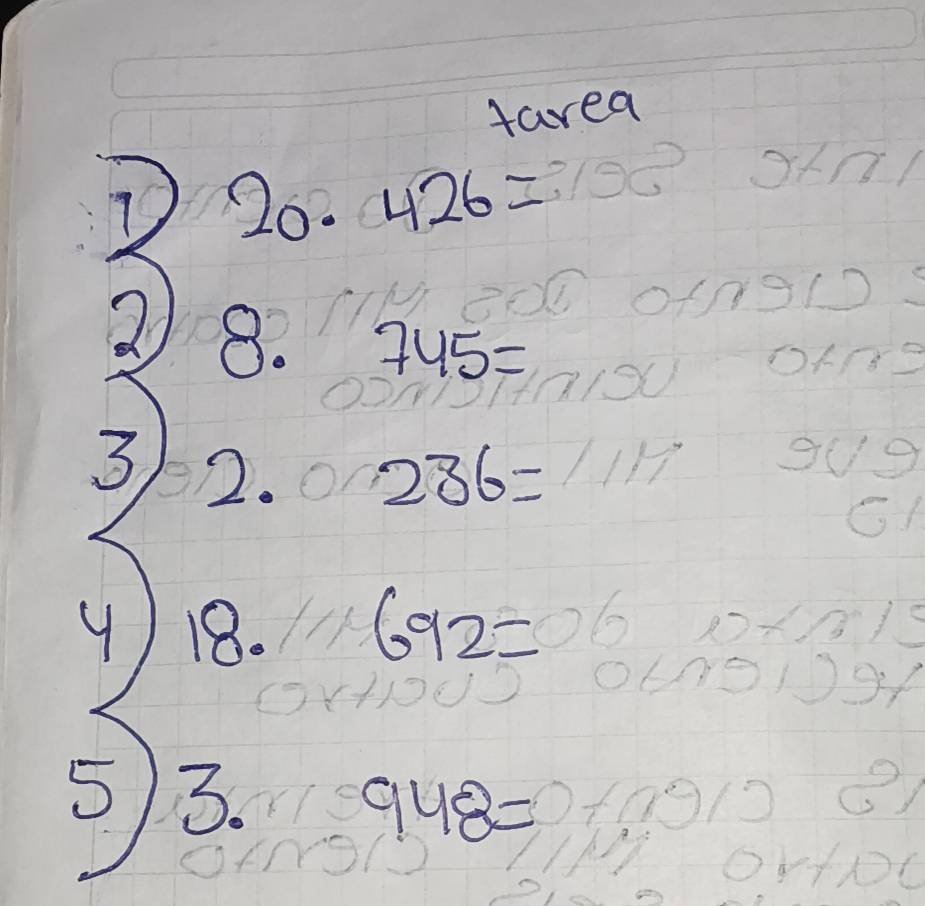 tarea
1) 20. 426=
2) 8. 745=
3) 2. 236=
4) 18. 692=
5) 3. 948=